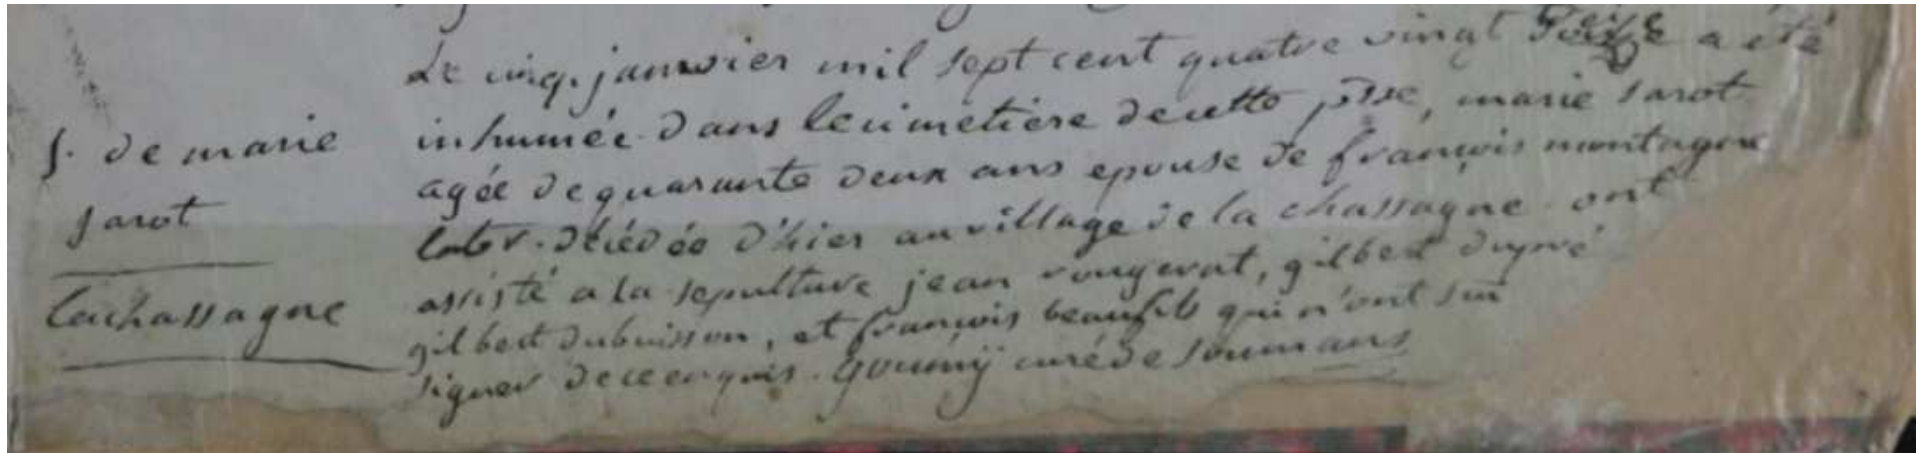 Le cinq. janvier mil sept cent quatre vingt treize a été
inhumée dans le cimetière de cette psse, marie sarot
agée de quarante deux ans epouse de françois montagne
labr. décédée d'hier au village de la chassagne. ont
assisté a la sepulture jean rougerat, gilbert dupré
gilbert dubuisson, et françois beaufils qui n'ont sçu
signer de ce enquis. goumÿ curé de soumans
S. de marie
sarot
lachassagne